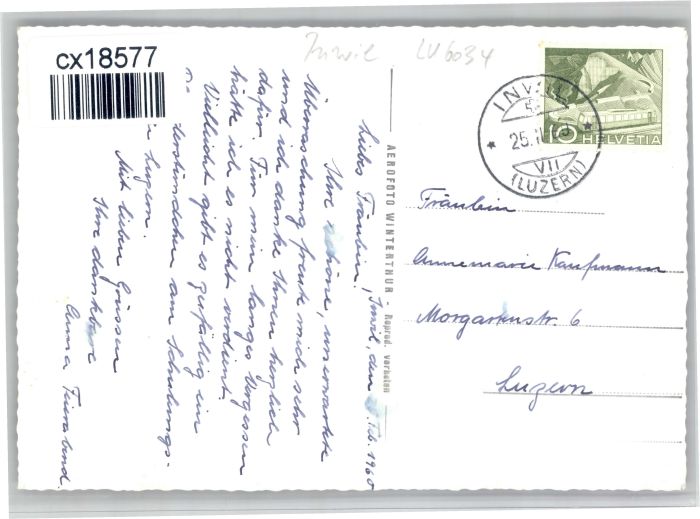 cx18577
Inwil LU 6034
HELVETIA
10
INWIL
25.II.
VII
(LUZERN)
Liebes Fräulein, Inwil, den Feb. 1960
Ihre schöne, unerwartete
Überraschung freute mich sehr
und ich danke Ihnen herzlich
dafür. Für mein langes Vergessen
hätte ich es nicht verdient.
Vielleicht gibt es gefällig ein
am Schulungs-
Luzern.
Mit lieben Grüssen
Ihre dankbare
Anna Feierabend.
AEROFOTO WINTERTHUR Reprod. verboten
Fräulein
Annemarie Kaufmann
Morgartenstr. 6
Luzern